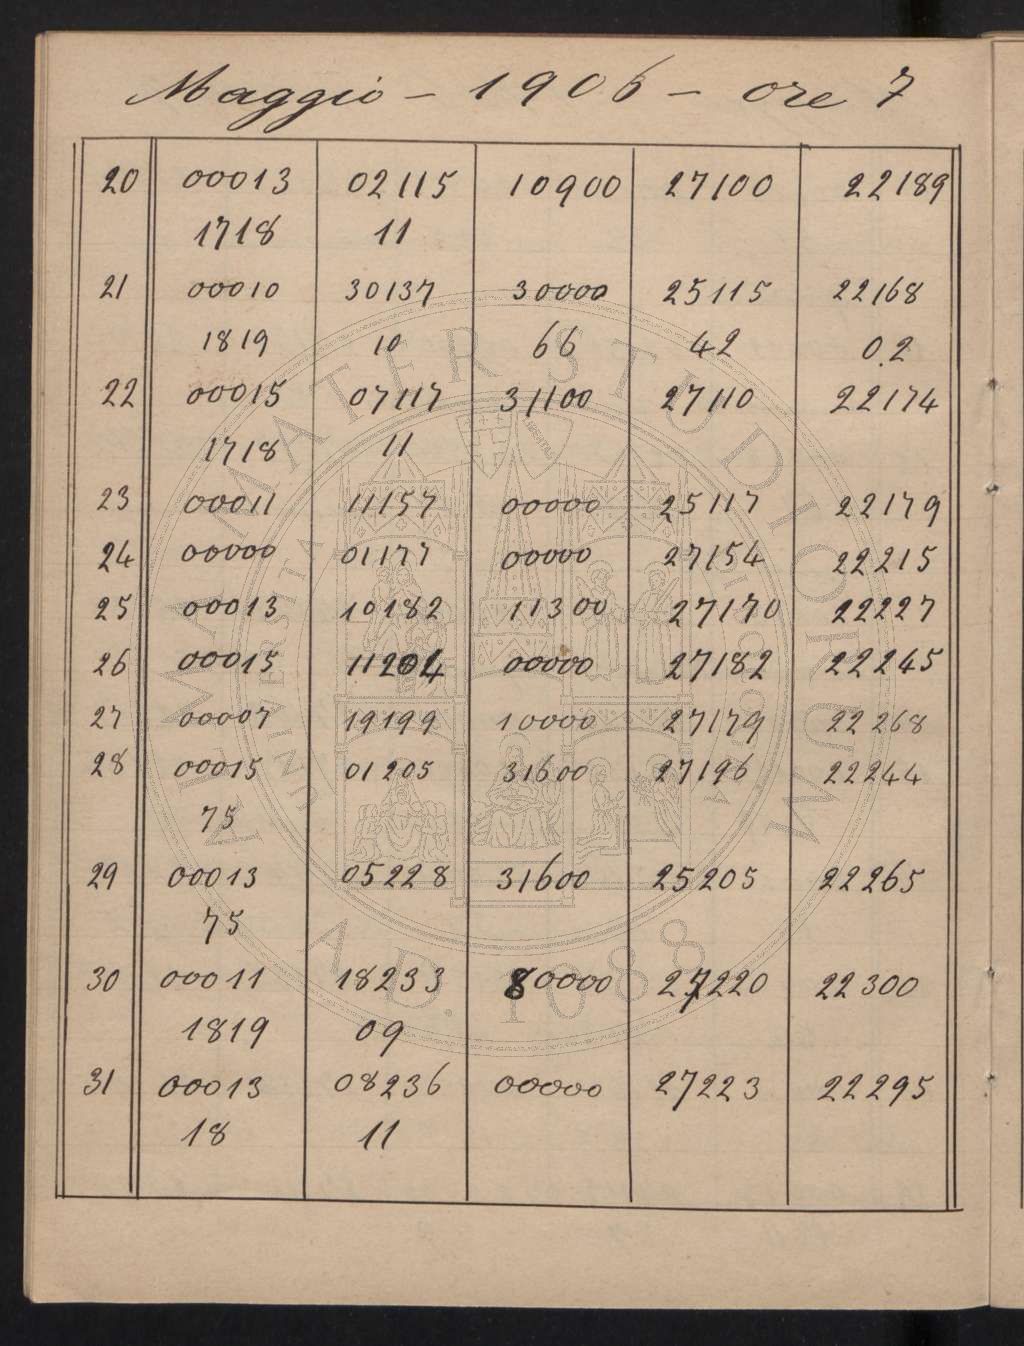 Maggio - 1906 - ore 7
20 00013 02115 10900 27100 22189
1718 11
21 00010 30137 30000 25115 22168
1819 10 66 42 02
22 00015 07117 31100 27110 22174
1718 11
23 00011 11157 00000 25117 22179
24 00000 01177 00000 27154 22215
25 00013 10182 11300 27170 22227
26 00015 11204 00000 27182 22245
27 00007 19199 10000 27179 22268
28 00015 01205 31600 27196 22244
75
29 00013 05228 31600 25205 22265
75
30 00011 18233 80000 27220 22300
1819 09
31 00013 08236 00000 27223 22295
18 11
ALMA MATER STUDIORUM
A.D. 1088